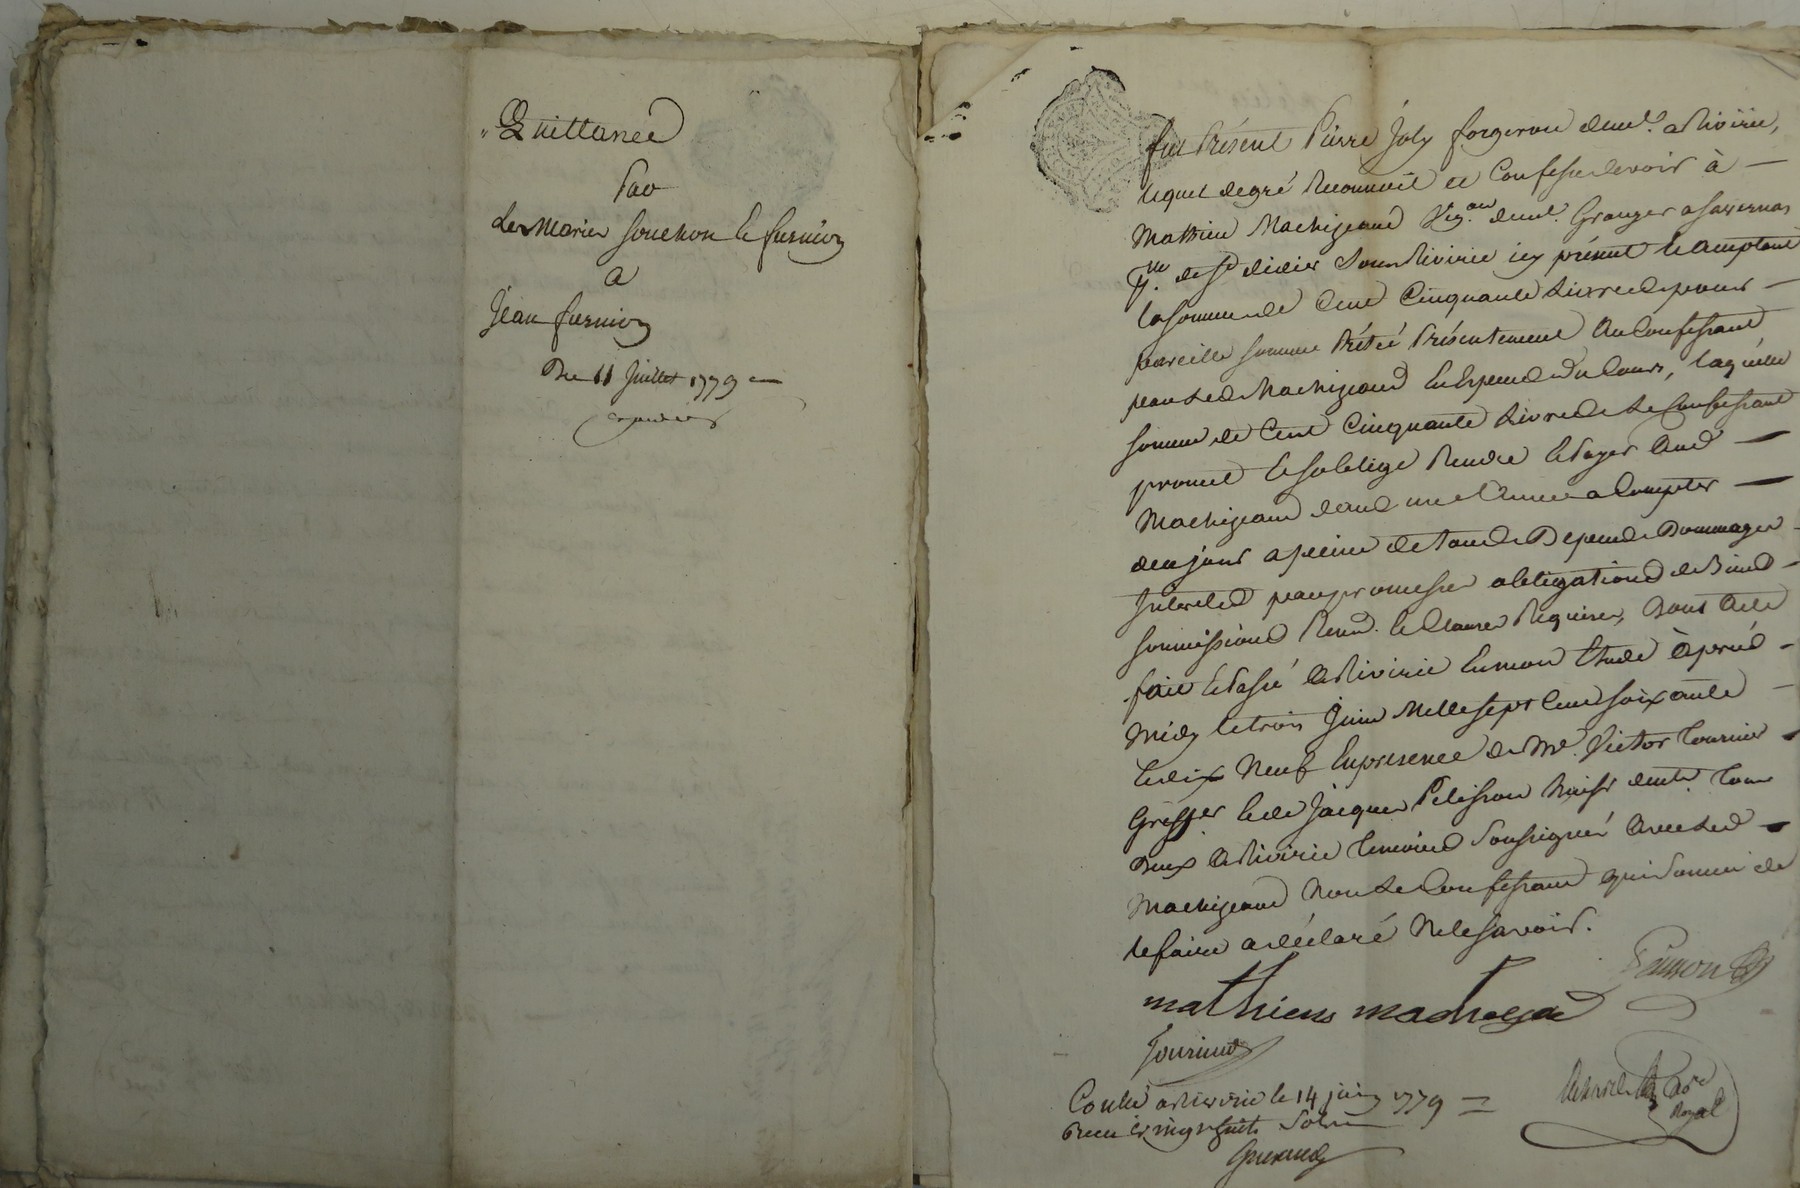 Quittance
Par
Les Mariés Souchon et furnion
a
Jean furnion
Du 11 Juillet 1779
fut Présent Pierre Joly forgeron demt. a Rivirie,
lequel degré Reconnoit et Confesse devoir à
Mathieu Machizeaud Vig.on demt. Granger a
de St didier Sous Rivirie icy présent Et acceptant
la somme de Cent Cinquante Livres pour
pareille somme Prêtée Présentement Au Confessant
par led. Machizeaud En Especes du Cours, laquelle
somme de Cent Cinquante Livres Le Confessant
promet Et soblige Rendre Et Payer Aud
Machizeaud dans une Année a Compter
de ce jour a peine de tous Depens Dommages
Interets par promesses obligations de Biens
soumissions Renon. Et Clauses Requises, Dont Acte
fait Et Passé A Rivirie En mon Etude Après
Midy le trois Juin Mille sept Cent soixante
Et dix Neuf En presence de Me. Victor Tournier
Greffier Et de Jacques Pelisson huissr demts. tous
Deux A Rivirie temoins soussignés Avec led
Machizeaud Non Le Confessant qui sommé de
le faire a déclaré Ne le savoir.
mathieu
Tournier
Royal
Conlé a Riverie le 14 juin 1779
Recu vingt huit sols